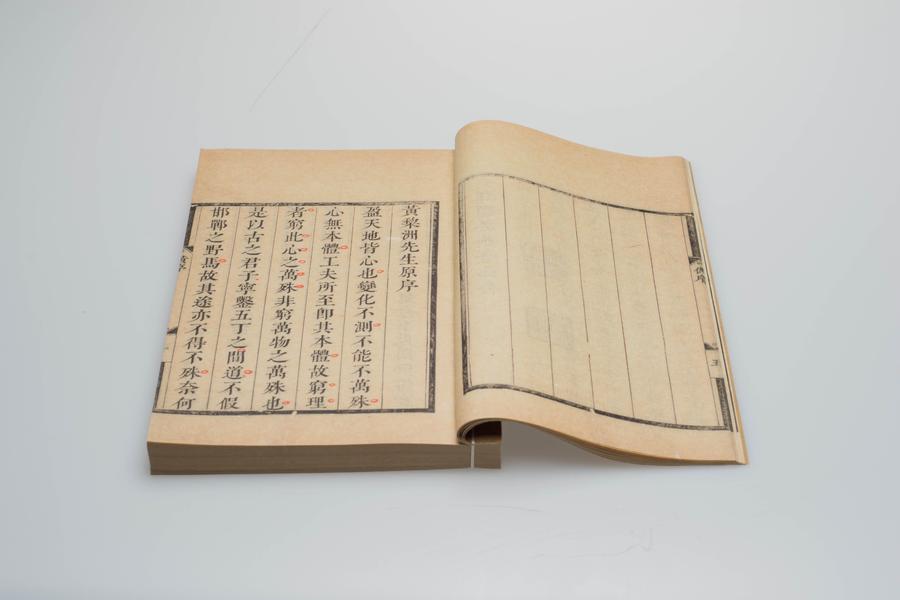 黃棃洲先生原序
盈天地皆心也變化不測不能不萬殊
心無本體工夫所至卽其本體故窮理
者窮此心之萬殊非窮萬物之萬殊也
是以古之君子寧鑿五丁之間道不假
邯鄲之野馬故其途亦不得不殊奈何
黃序
五